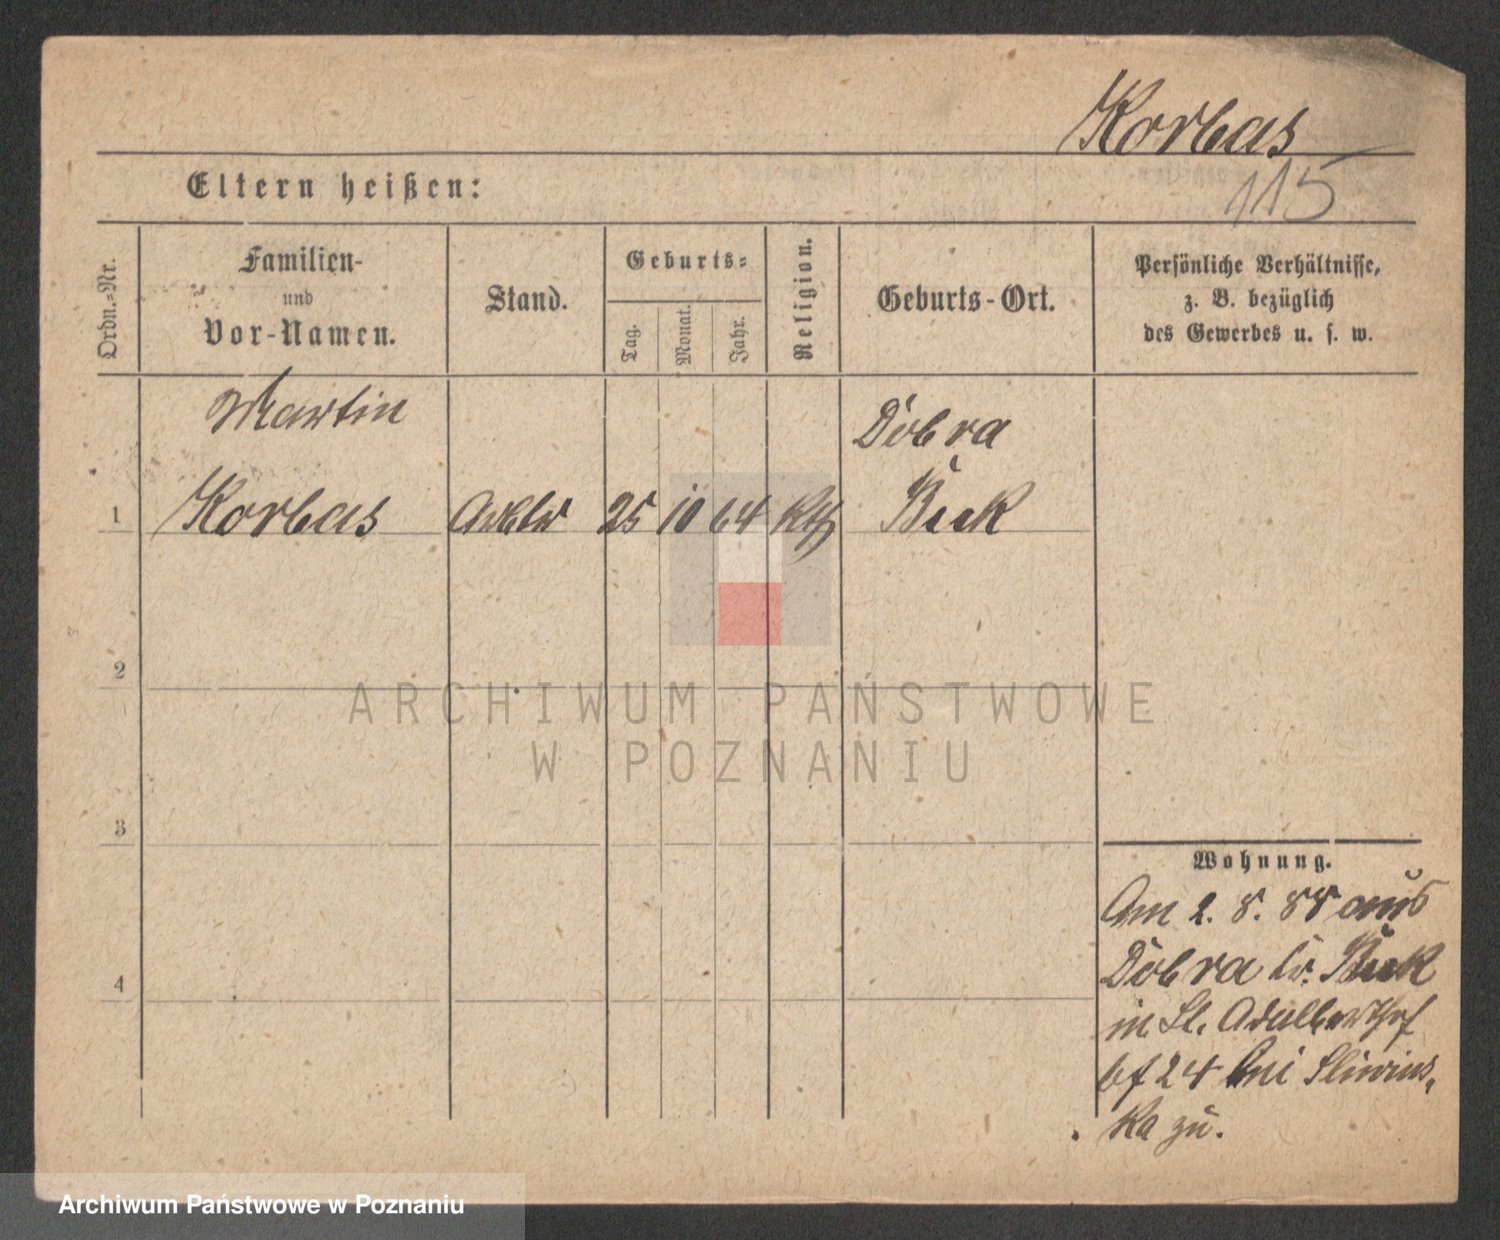 Korbas
115
Eltern heißen:
Ordn.-Nr.
Familien-
und
Vor-Namen.
Stand.
Geburts-
Tag.
Monat.
Jahr.
Religion.
Geburts-Ort.
Persönliche Verhältnisse,
z. B. bezüglich
des Gewerbes u. s. w.
Martin
Korbas
Dobra
Buk
1
25
10
64
Kth
2
3
4
Wohnung.
Am 2. 8. 88 aus
Dobra Kr. Buk
in St. Adalberthof
24 bei Sliwins-
ka zu.
ARCHIWUM PAŃSTWOWE
W POZNANIU
Archiwum Państwowe w Poznaniu